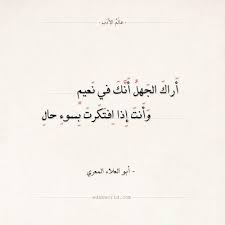 - عالم الأدب -
أَراكَ الجَهلُ أَنَّكَ في نَعيمٍ
وَأَنتَ إِذا اِفتَكَرتَ بِسوءِ حالِ
- أبو العلاء المعري -
adabworld.com